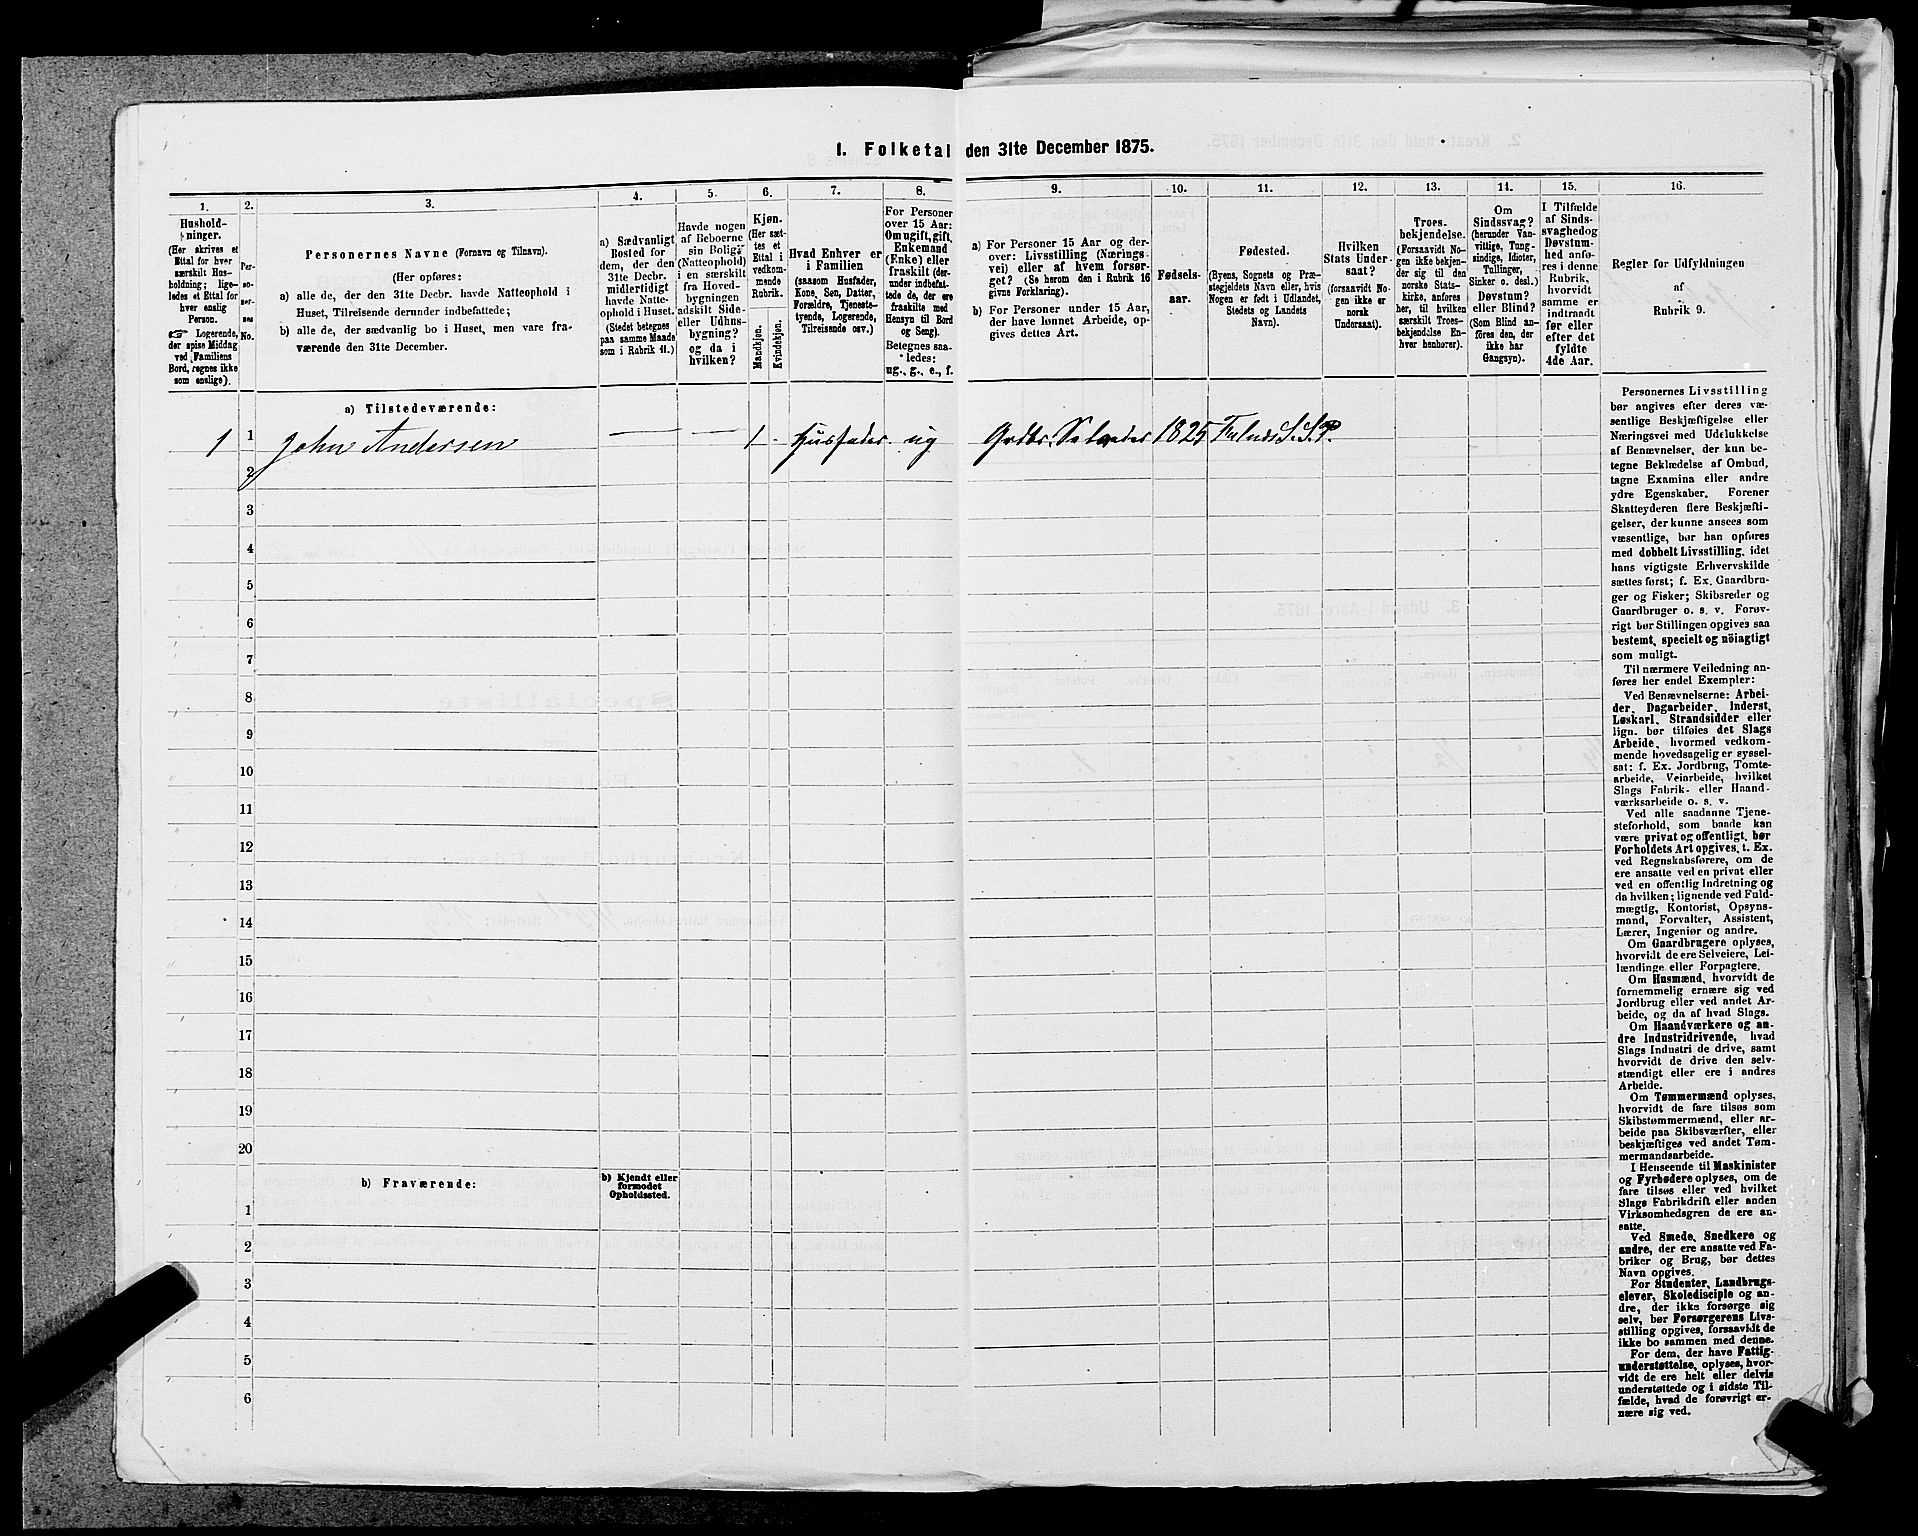 1. Folketal den 31te December 1875.
1. 2. 3. 4. 5. 6. 7. 8. 9. 10. 11. 12. 13. 14. 15. 16.
Hushold-
ninger.
(Her skrives et
Ettal for hver
særskilt Hus-
holdning; lige-
ledes et Ettal for
hver enslig
Person.
☞ Logerende,
der spise Middag
ved Familiens
Bord, regnes ikke
som enslige).
Per-
so-
ner-
nes
No.
Personernes Navne (Fornavn og Tilnavn).
(Her opføres:
a) alle de, der den 31te Decbr. havde Natteophold i
Huset, Tilreisende derunder indbefattede;
b) alle de, der sædvanlig bo i Huset, men vare fra-
værende den 31te December.
a) Sædvanligt
Bosted for
dem, der den
31te Decbr.
midlertidigt
havde Natte-
ophold i Huset.
(Stedet betegnes
paa samme Maade
som i Rubrik 11.)
Havde nogen
af Beboerne
sin Bolig
(Natteophold)
i en særskilt
fra Hoved-
bygningen
adskilt Side-
eller Udhus-
bygning?
og da i
hvilken?
Kjøn.
(Her sæt-
tes et
Ettal i
vedkom-
mende
Rubrik.
Mandkjøn.
Kvindekjøn.
Hvad Enhver er
i Familien
(saasom Husfader,
Kone, Søn, Datter,
Forældre, Tjeneste-
tyende, Logerende,
Tilreisende osv.)
For Personer
over 15 Aar:
Om ugift, gift,
Enkemand
(Enke) eller
fraskilt (der-
under indbefat-
tede de, der ere
fraskilte med
Hensyn til Bord
og Seng).
Betegnes saa-
ledes:
ug., g., e., f.
a) For Personer 15 Aar og der-
over: Livsstilling (Nærings-
vei) eller af hvem forsør-
get? (Se herom den i Rubrik 16
givne Forklaring).
b) For Personer under 15 Aar,
der have lønnet Arbeide, op-
gives dettes Art.
Fødsels-
aar.
Fødested.
(Byens, Sognets og Præ-
stegjeldets Navn eller, hvis
Nogen er født i Udlandet,
Stedets og Landets
Navn).
Hvilken
Stats Under-
saat?
(forsaavidt No-
gen ikke er
norsk
Undersaat).
Troes-
bekjendelse.
(Forsaavidt No-
gen ikke bekjen-
der sig til den
norske Stats-
kirke, anføres
her, til hvilken
særskilt Troes-
bekjendelse En-
hver henhører).
Om
Sindssvag?
(herunder Van-
vittige, Tung-
sindige, Idioter,
Tullinger,
Sinker o. desl.)
Døvstum?
eller Blind?
(Som Blind an-
føres den, der
ikke har
Gangsyn).
I Tilfælde
af Sinds-
svaghed og
Døvstum-
hed anfø-
res i denne
Rubrik,
hvorvidt
samme er
indtraadt
før eller
efter det
fyldte
4de Aar.
Regler for Udfyldningen
af
Rubrik 9.
a) Tilstedeværende:
1 1 John Andersen — — 1 . Husfader ug Grdbr. Selveier 1825 Furlunds S. S. P.
2
3
4
5
6
7
8
9
10
11
12
13
14
15
16
17
18
19
20
b) Fraværende:
b) Kjendt eller
formodet
Opholdssted.
1
2
3
4
5
6
Personernes Livsstilling
bør angives efter deres væ-
sentlige Beskjæftigelse eller
Næringsvei med Udelukkelse
af Benævnelser, der kun be-
tegne Beklædelse af Ombud,
tagne Examina eller andre
ydre Egenskaber. Forener
Skatteyderen flere Beskjæfti-
gelser, der kunne ansees som
væsentlige, bør han opføres
med dobbelt Livsstilling, idet
hans vigtigste Erhvervskilde
sættes først; f. Ex. Gaardbru-
ger og Fisker; Skibsreder og
Gaardbruger o. s. v. Forøv-
rigt bør Stillingen opgives saa
bestemt, specielt og nöiagtigt
som muligt.
Til nærmere Veiledning an-
føres her endel Exempler:
Ved Benævnelserne: Arbei-
der, Dagarbeider, Inderst,
Løskarl, Strandsidder eller
lign. bør tilføies det Slags
Arbeide, hvormed vedkom-
mende hovedsagelig er syssel-
sat: f. Ex. Jordbrug, Tomte-
arbeide, Veiarbeide, hvilket
Slags Fabrik- eller Haand-
værksarbeide o. s. v.
Ved alle saadanne Tjene-
steforhold, som baade kan
være privat og offentligt, bør
Forholdets Art opgives, t. Ex.
ved Regnskabsførere, om de
ere ansatte ved en privat eller
ved en offentlig Indretning og
da hvilken; lignende ved Fuld-
mægtig, Kontorist, Opsyns-
mand, Forvalter, Assistent,
Lærer, Ingeniør og andre.
Om Gaardbrugere oplyses,
hvorvidt de ere Selveiere, Lei-
lændinge eller Forpagtere.
Om Husmænd, hvorvidt de
fornemmelig ernære sig ved
Jordbrug eller ved andet Ar-
beide, og da af hvad Slags.
Om Haandværkere og an-
dre Industridrivende, hvad
Slags Industri de drive, samt
hvorvidt de drive den selv-
stændigt eller ere i andres
Arbeide.
Om Tømmermænd oplyses,
hvorvidt de fare tilsøs som
Skibstømmermænd, eller ar-
beide paa Skibsværfter, eller
beskjæftiges ved andet Tøm-
mermandsarbeide.
I Henseende til Maskinister
og Fyrbødere oplyses, om de
fare tilsøs eller ved hvilket
Slags Fabrikdrift eller anden
Virksomhedsgren de ere an-
satte.
Ved Smede, Snedkere og
andre, der ere ansatte ved Fa-
briker og Brug, bør dettes
Navn opgives.
For Studenter, Landbrugs-
elever, Skoledisciple og an-
dre, der ikke forsørge sig
selv, bør Forsørgerens Livs-
stilling opgives, forsaavidt de
ikke bo sammen med denne.
For dem, der have Fattig-
understøttelse, oplyses, hvor-
vidt de ere helt eller delvis
understøttede og i sidste Til-
fælde, hvad de forøvrigt er-
nære sig ved.